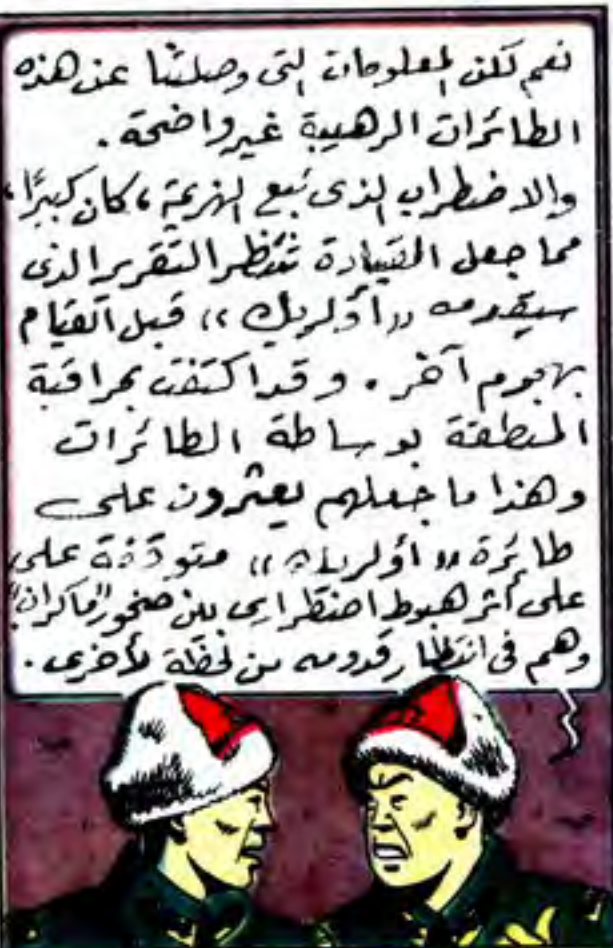 نعم لكن المعلومات التى وصلتنا عن هذه
الطائرات الرهيبة غير واضحة .
والاضطراب الذى تبع الهزيمة ، كان كبيرًا ،
مما جعل القيادة تنتظر التقرير الذى
سيقدمه « أولريك » قبل القيام
بهجوم آخر . وقد اكتفت بمراقبة
المنطقة بوساطة الطائرات
وهذا ما جعلهم يعثرون على
طائرة « أولريك » متوقفة على
على أثر هبوط اضطرارى بين صخور "ماكران"
وهم فى انتظار قدومه من لحظة لأخرى .